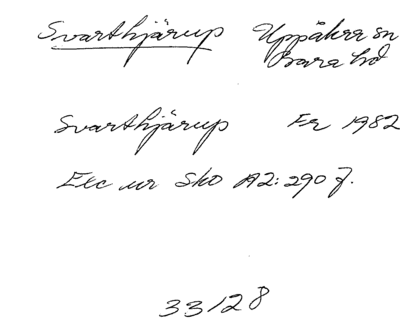 Svarthjärup Uppåkra sn
Bara hd
Svarthjärup Fr 1982
Exc ur Sko A2:290 f.
33128